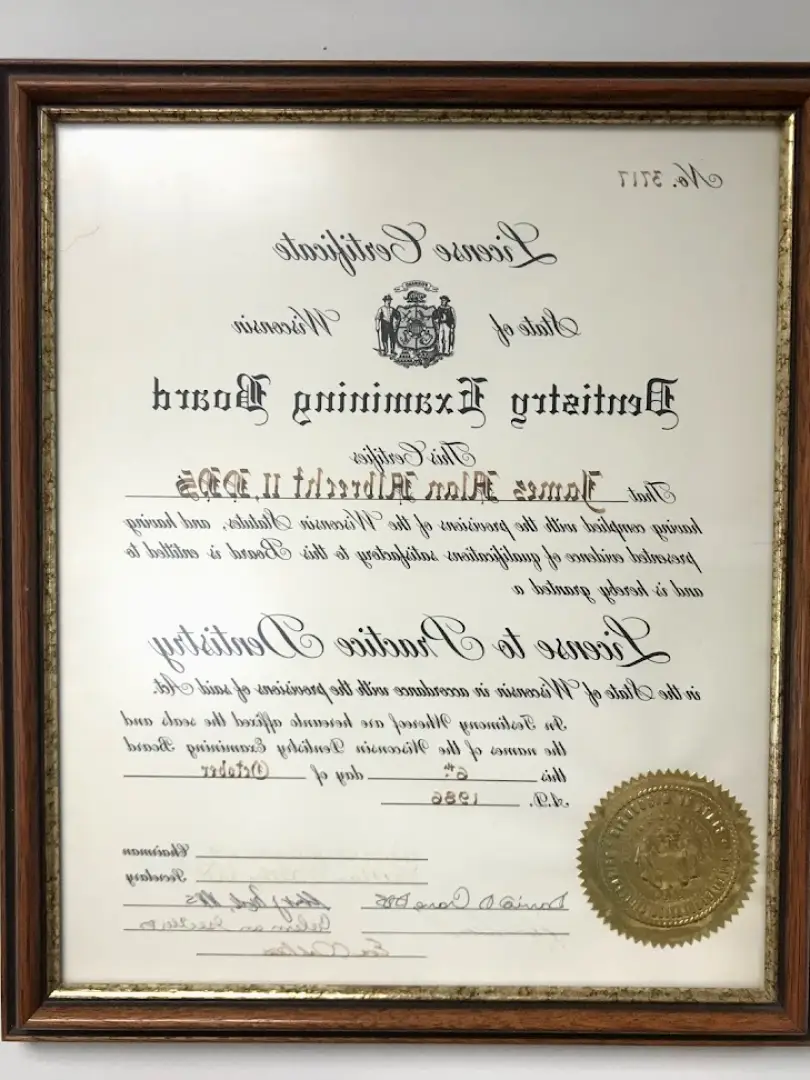 No. 3717
License Certificate
State of Wisconsin
Dentistry Examining Board
This Certifies
That James Alan Albrecht II, DDS
having complied with the provisions of the Wisconsin Statutes, and having
presented evidence of qualifications satisfactory to this Board is entitled to
and is hereby granted a
License to Practice Dentistry
in the State of Wisconsin in accordance with the provisions of said Act.
In Testimony Whereof are hereunto affixed the seals and
the names of the Wisconsin Dentistry Examining Board
this 6th. day of October
A.D. 1986
Chairman
Secretary
David D Crane DDS